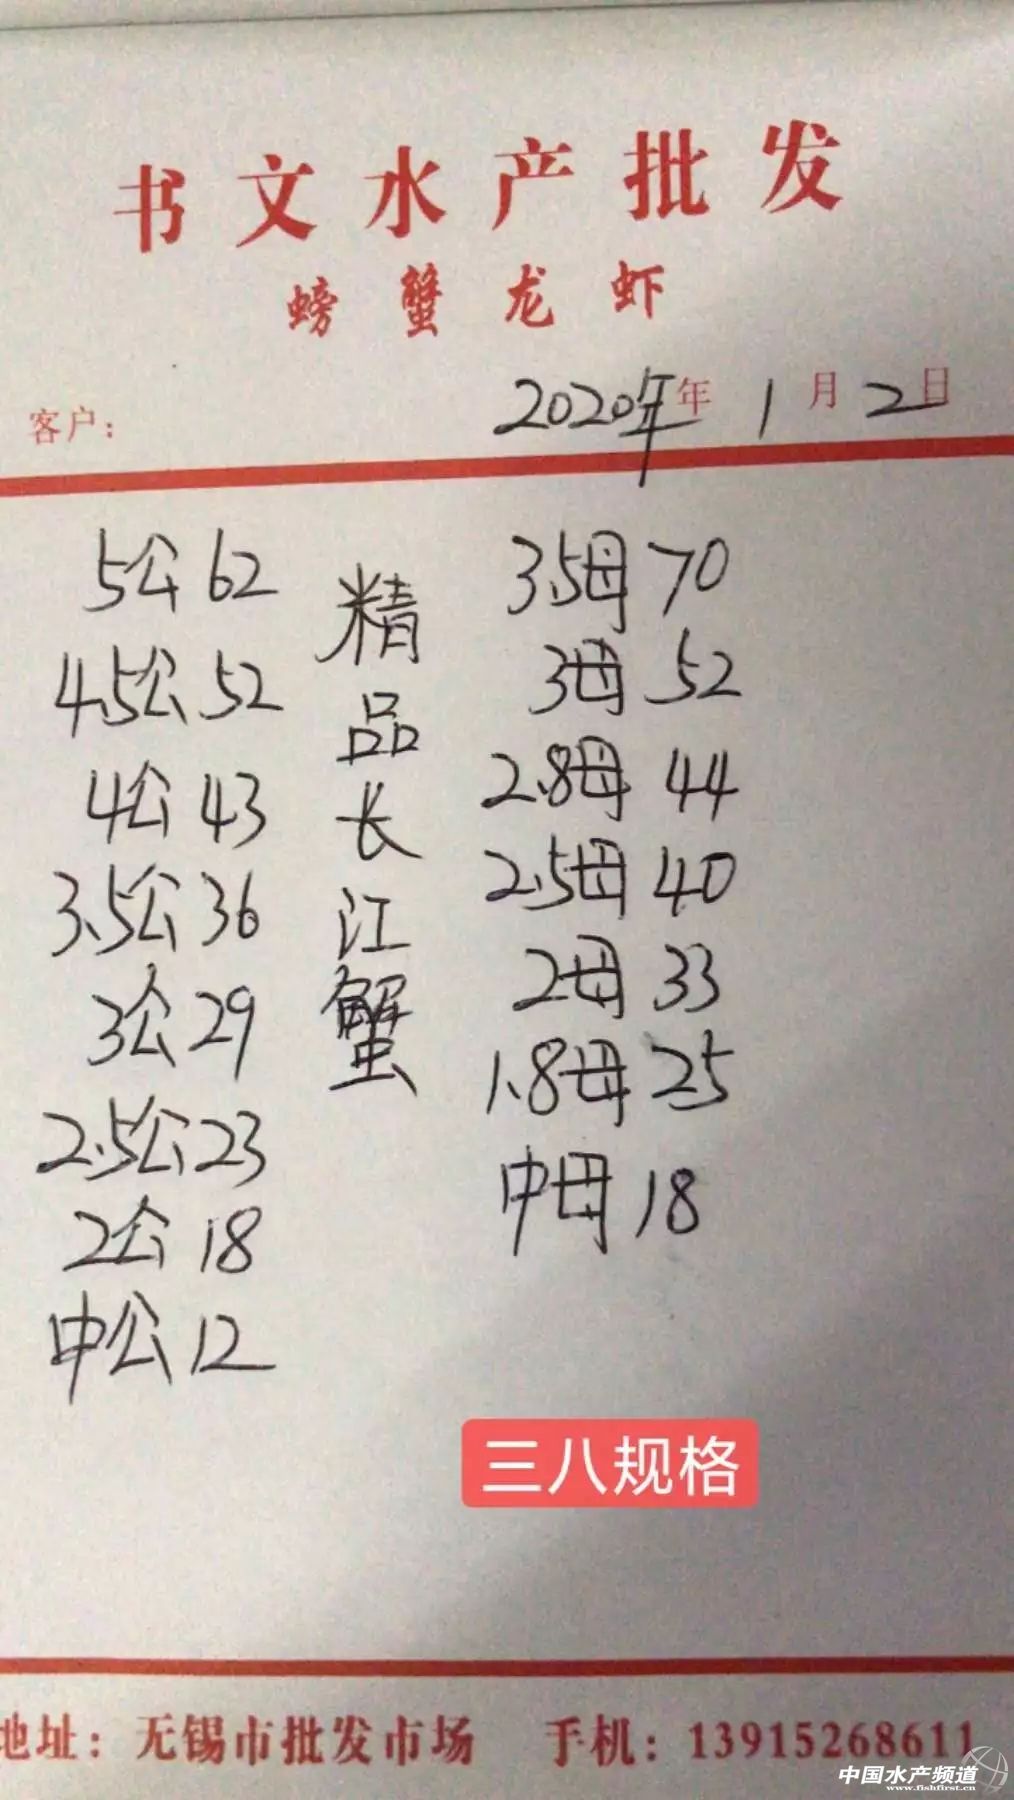 书文水产批发
螃蟹龙虾
客户： 2020年年1月2日
5公62
4.5公52
4公43
3.5公36
3公29
2.5公23
2公18
中公12
精品长江蟹
3.5母70
3母52
2.8母44
2.5母40
2母33
1.8母25
中母18
三八规格
地址：无锡市批发市场 手机：13915268611
中国水产频道
www.fishfirst.cn